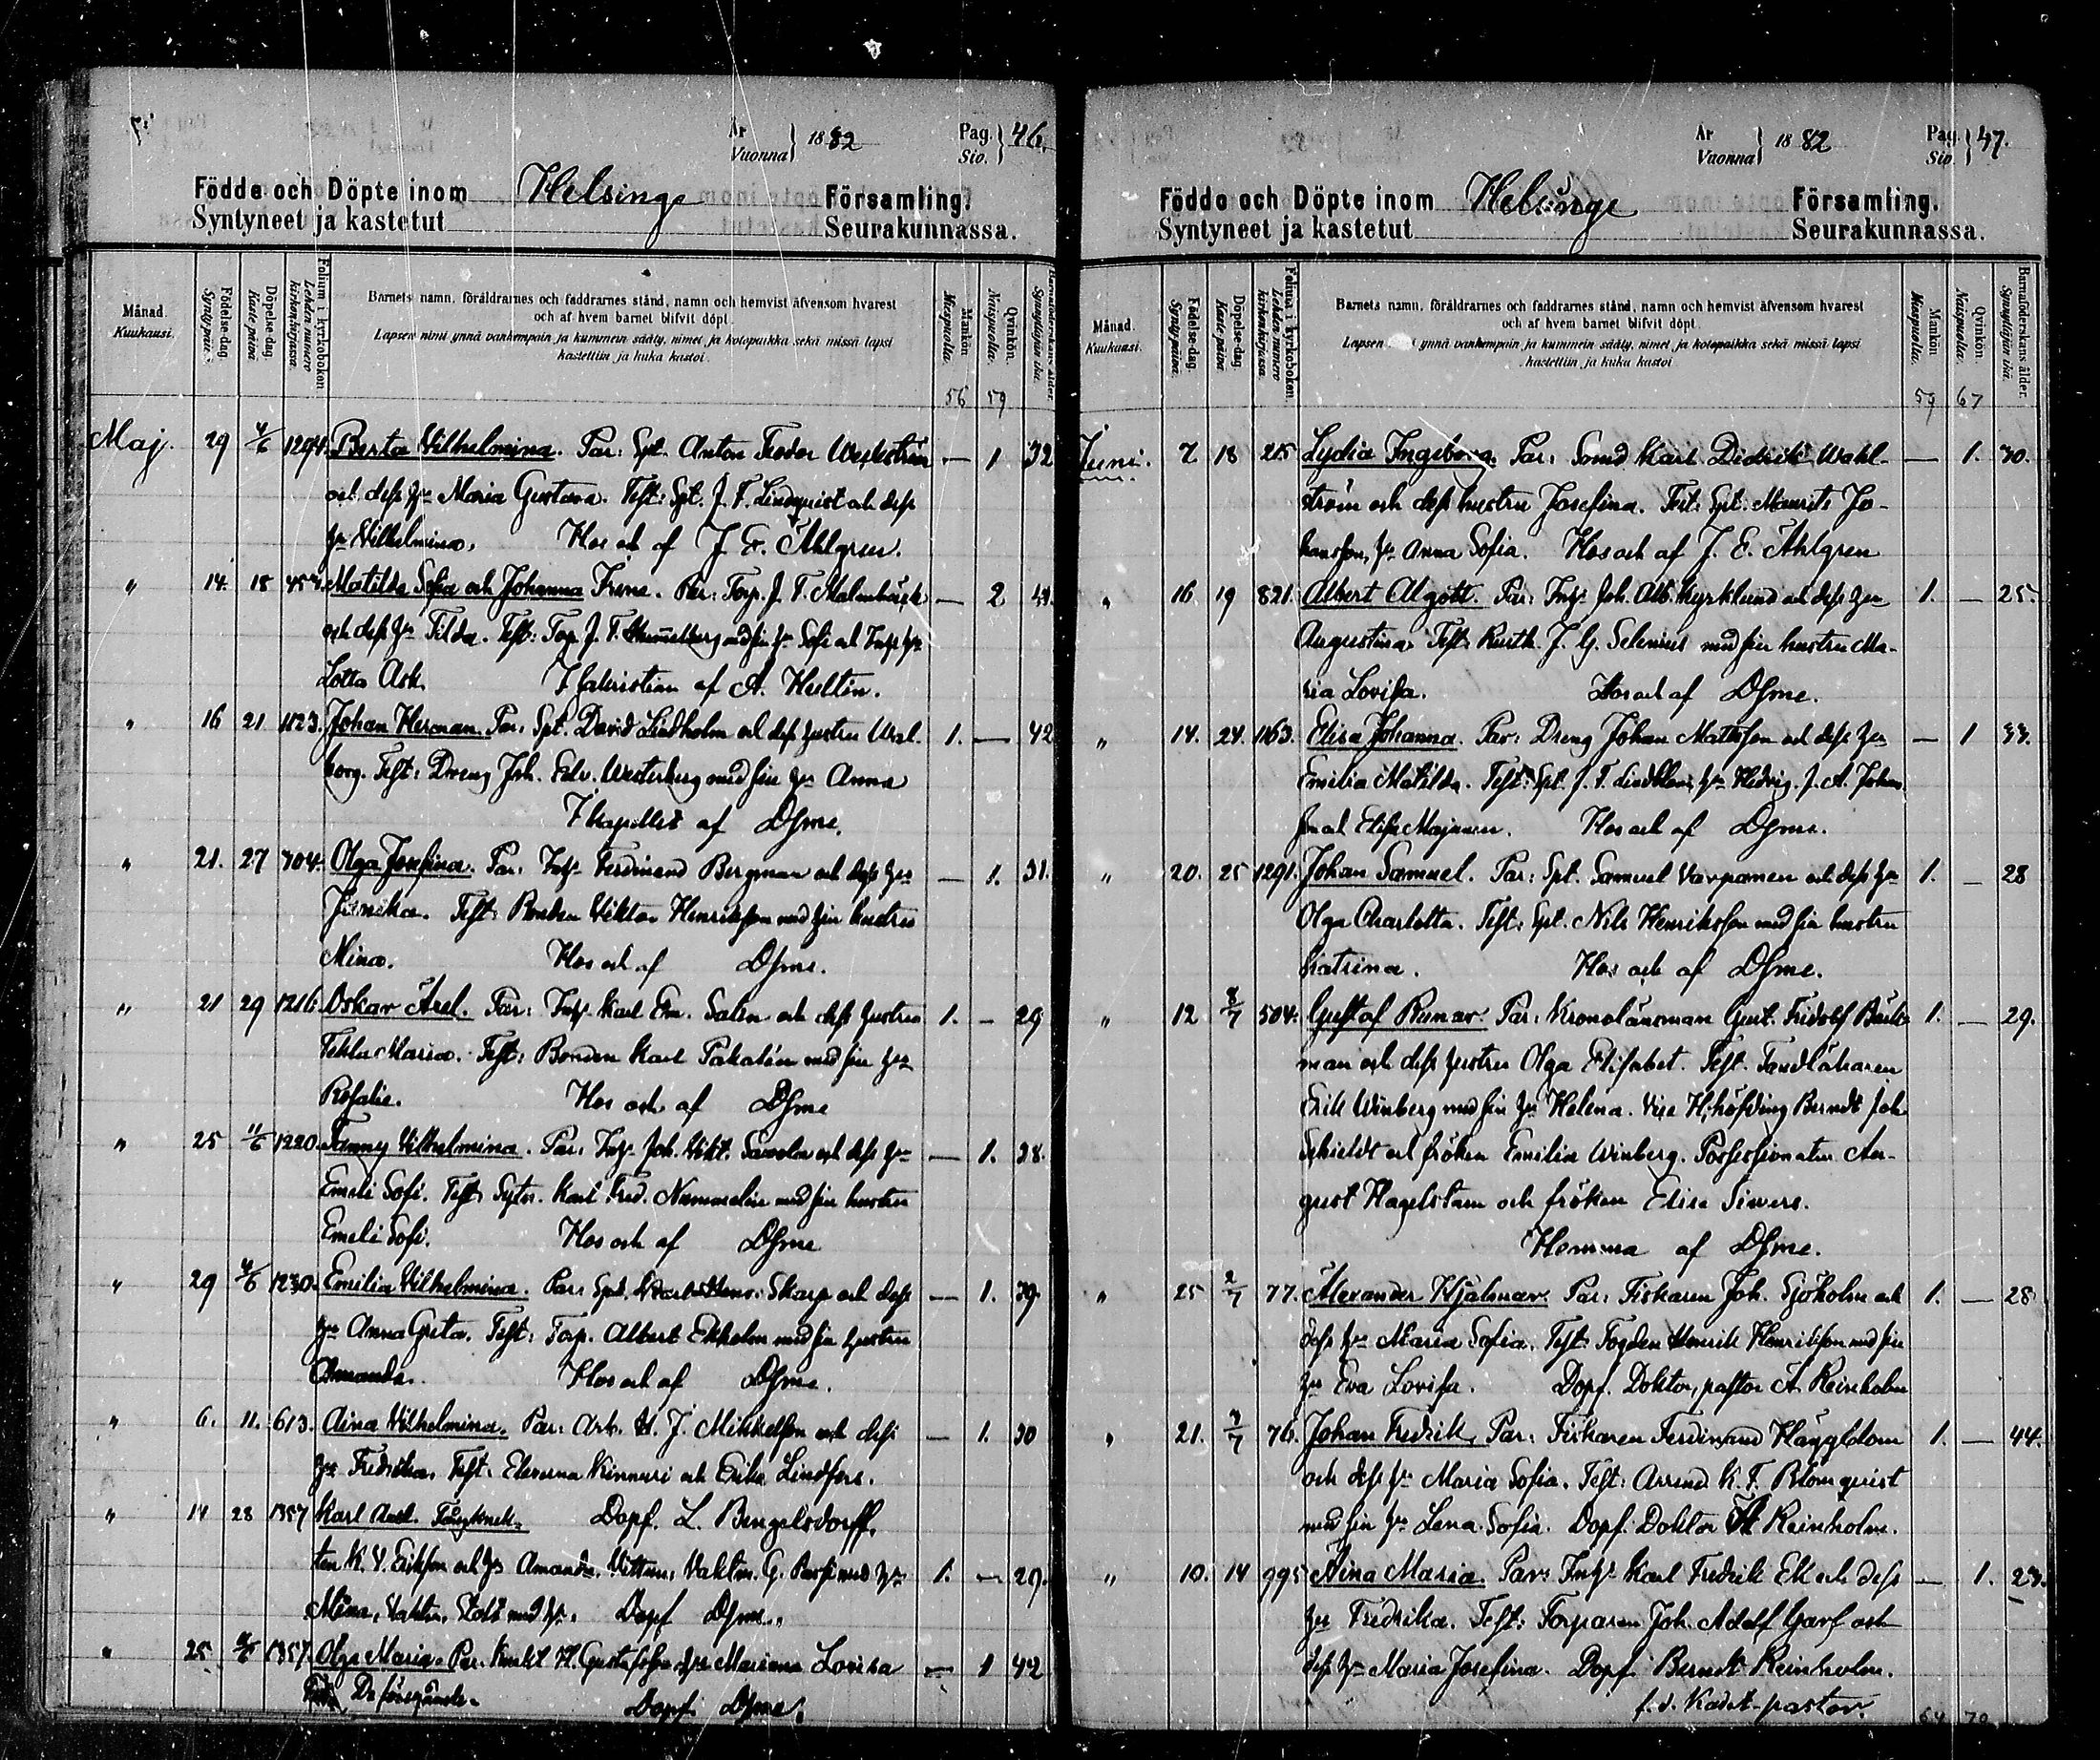 År 1882 Pag. 46.
Vuonna Siv.
Födde och Döpte inom Helsinge Församling.
Syntyneet ja kastetut Seurakunnassa.
Månad. Kuukausi.
Födelse-dag. Syntypäivä.
Döpelse-dag. Kaste-päivä
Folium i kyrkoboken. Lehden numero kirkonkirjassa.
Barnets namn, föräldrarnes och faddrarnes stånd, namn och hemvist äfvensom hvarest
och af hvem barnet blifvit döpt.
Lapsen nimi ynnä vanhempain ja kummein sääty, nimet ja kotopaikka sekä missä lapsi
kastettiin ja kuka kastoi.
Mankön. Miespuolia.
Qvinkön. Naispuolia.
Barnaföderskans ålder. Synnyttäjän ikä.
56 59
Maj. 29 4/6 1294. Berta Vilhelmina. Par: Spt. Anton Feodor — 1 32
och dess hu Maria Gustava. Test: Spt. J. F. Lindquist och dess
hu Vilhelmina. Hos och af J. E. Ahlgren.
" 14. 18 Matilda Sofia och Johanna Irene. Par: Torp. J. F. Malmbäck — 2
och dess hu Tilda. Test: Torp. J. F. med sin hu Sofi och
Lotta Ask. I sakristian af A. Hultin.
" 16 21 1123. Johan Herman. Par: Spt. David Lindholm och dess hustru Wal- 1. — 42
borg. Test: Dreng Joh. Edv. Westerberg med sin hu Anna
I kapellet af Dsme.
" 21. 27 704. Olga Josefina. Par: Inhs Ferdinand Bergman och dess hu — 1. 31.
Test: Bonden Viktor Henriksson med sin hustru
Mina. Hos och af Dsme.
" 21 29 1216. Oskar Axel. Par: Inhs Karl Em. Salen och dess hustru 1. — 29
Tekla Maria. Test: Bonden Karl med sin hu
Rosalie. Hos och af Dsme
" 25 11/6 1220. Fanny Vilhelmina. Par: Inhs Joh. Vikt. och dess hu — 1. 28.
Emeli Sofi. Test: Sytn. Karl Fred. Nummelin med sin hustru
Emeli Sofi. Hos och af Dsme
" 29 4/6 1230. Emilia Vilhelmina. Par: Spt. Skarp och dess — 1. 39.
hu Anna Greta. Test: Torp. Albert Ekholm med sin hustru
Amanda. Hos och af Dsme.
" 6. 11. 613. Aina Vilhelmina. Par: Arb. H. J. Mikkelson och dess — 1. 30
hu Fredrika. Test: Kinnari och Erika Lindfors.
" 14 28 1357 Karl Axel. Fångknek- Döpf. L. Bengelsdorff.
ten K. V. Erikson och hu Amanda. Vittnen: Vaktm. G. med hu 1. — 29.
Mina, Vaktm. med hu. Döpf Dsme.
" 25 1357. Olga Maria. Par. H. Gustafsson hu Mariana Lovisa — 1 42
De föregående. Döpf. Dsme.
År 1882 Pag. 47.
Vuonna Siv.
Födde och Döpte inom Helsinge Församling.
Syntyneet ja kastetut Seurakunnassa.
Månad. Kuukausi.
Födelse-dag. Syntypäivä.
Döpelse-dag. Kaste-päivä
Folium i kyrkoboken. Lehden numero kirkonkirjassa.
Barnets namn, föräldrarnes och faddrarnes stånd, namn och hemvist äfvensom hvarest
och af hvem barnet blifvit döpt.
Lapsen ynnä vanhempain ja kummein sääty, nimet ja kotopaikka sekä missä lapsi
kastettiin ja kuka kastoi
Mankön Miespuolia.
Qvinkön. Naispuolia.
Barnaföderskans ålder. Synnyttäjän ikä.
59 67
Juni. 7 18 215 Lydia Ingeborg. Par: Smed Karl Didrik Wahl- — 1. 30.
ström och dess hustru Josefina. Test: Spt. Maurits Jo-
hansson, hu Anna Sofia. Hos och af J. E. Ahlgren
" 16. 19 821. Albert Algott. Par: Inhs Joh. Alb. Kyrklund och dess hu 1. — 25.
Augustina. Test: Kusk. J. G. Selenius med sin hustru Ma-
ria Lovisa. Hos och af Dsme.
" 14. 24. 1163. Elisa Johanna. Par: Dreng Johan Mattsson och dess hu — 1 33.
Emilia Matilda. Test: Spt. J. F. Lindblom, hu Hedvig. J. A. Johans-
son och Elisa Majanen. Hos och af Dsme.
" 20. 25 1291. Johan Samuel. Par: Spt. Samuel Varpanen och dess hu 1. — 28
Olga Charlotta. Test: Spt. Nils Henriksson med sin hustru
Katrina. Hos och af Dsme.
" 12 8/7 504. Gustaf Runar. Par: Kronolänsman Gust. Fridolf Bäck- 1. — 29.
man och dess hustru Olga Elisabet. Test. Tandläkaren
Erik Winberg med sin hu Helena. Vice H.höfding Berndt Joh.
Schildt och fröken Emilia Winberg. Possessionaten Au-
gust Hagelstam och fröken Elise Sivers.
Hemma af Dsme.
" 25 2/7 77. Alexander Hjalmar. Par: Fiskaren Joh. Sjöholm och 1. — 28
dess hu Maria Sofia. Test: Fogden Henrik Henriksson med sin
hu Eva Lovisa. Döpf. Doktor, pastor A. Reinholm
" 21. 7/7 76. Johan Fredrik. Par: Fiskaren Ferdinand Häggblom 1. — 44.
och dess hu Maria Sofia. Test: Arrend. K. F. Blomquist
med sin hu Lena Sofia. Döpf. Doktor A Reinholm.
" 10. 14 995 Aina Maria. Par: Inhs Karl Fredrik Ek och dess — 1. 23.
hu Fredrika. Test: Torparen Joh. Adolf Garf och
dess hu Maria Josefina. Döpf Berndt Reinholm.
f.d. Kadet-pastor.
64 70